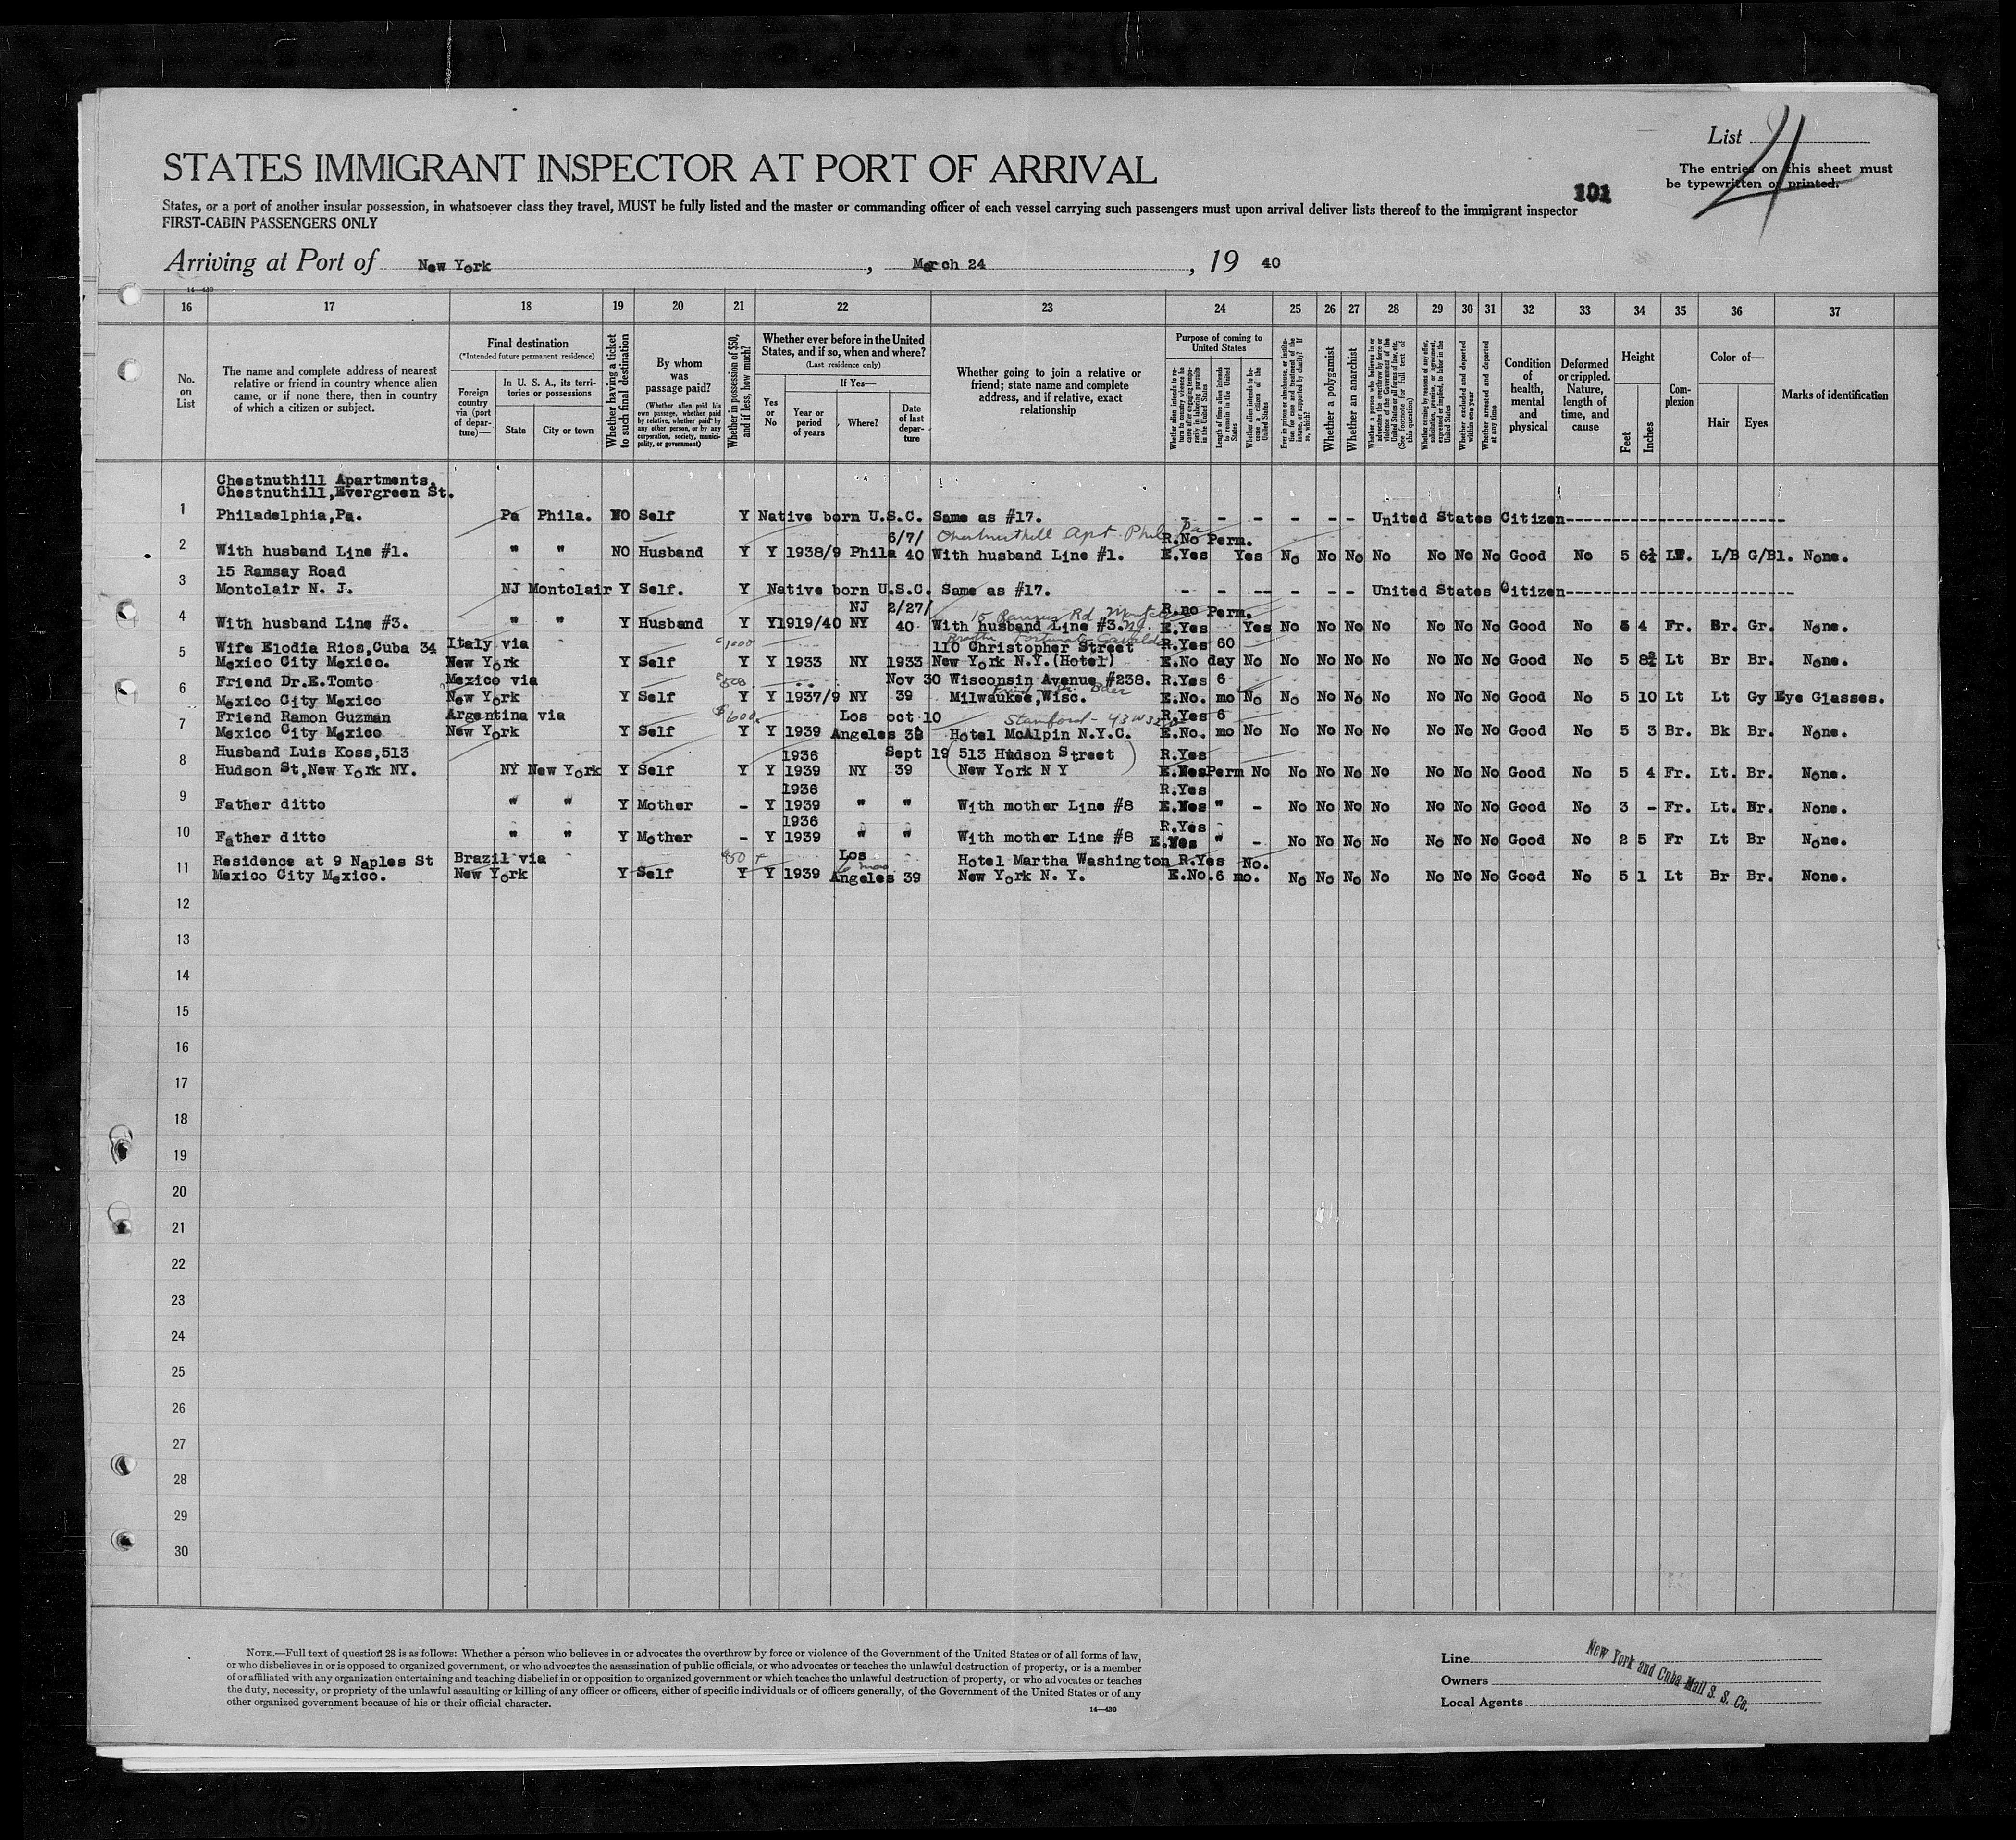 List 4
The entries on this sheet must
be typewritten or printed.
STATES IMMIGRANT INSPECTOR AT PORT OF ARRIVAL
101
States, or a port of another insular possession, in whatsoever class they travel, MUST be fully listed and the master or commanding officer of each vessel carrying such passengers must upon arrival deliver lists thereof to the immigrant inspector
FIRST-CABIN PASSENGERS ONLY
Arriving at Port of New York, March 24, 19 40
16 17 18 19 20 21 22 23 24 25 26 27 28 29 30 31 32 33 34 35 36 37
No. on List
The name and complete address of nearest relative or friend in country whence alien came, or if none there, then in country of which a citizen or subject.
Final destination
(*Intended future permanent residence)
Foreign country via (port of departure)—
In U. S. A., its territories or possessions
State
City or town
Whether having a ticket to such final destination
By whom was passage paid?
(Whether alien paid his own passage, whether paid by relative, whether paid by any other person, or by any corporation, society, municipality, or government)
Whether in possession of $50, and if less, how much?
Whether ever before in the United States, and if so, when and where?
(Last residence only)
Yes or No
If Yes—
Year or period of years
Where?
Date of last departure
Whether going to join a relative or friend; state name and complete address, and if relative, exact relationship
Purpose of coming to United States
Whether alien intends to return to country whence he came after engaging temporarily in laboring pursuits in the United States
Length of time alien intends to remain in the United States
Whether alien intends to become a citizen of the United States
Ever in prison or almshouse, or institution for care and treatment of the insane, or supported by charity? If so, which?
Whether a polygamist
Whether an anarchist
Whether a person who believes in or advocates the overthrow by force or violence of the Government of the United States or all forms of law, etc. (See footnote for full text of this question)
Whether coming by reasons of any offer, solicitation, promise, or agreement, expressed or implied, to labor in the United States
Whether excluded and deported within one year
Whether arrested and deported at any time
Condition of health, mental and physical
Deformed or crippled. Nature, length of time, and cause
Height
Feet
Inches
Complexion
Color of—
Hair
Eyes
Marks of identification
Chestnuthill Apartments,
Chestnuthill,Evergreen St.
1 Philadelphia,Pa. Pa Phila. NO Self Y Native born U.S.C. Same as #17. - - - - - - United States Citizen
6/7/ Chestnuthill Apt. Phila Pa R.No Perm.
2 With husband Line #1. " " NO Husband Y Y 1938/9 Phila 40 With husband Line #1. E.Yes Yes No No No No No No No Good No 5 6½ LW. L/B G/Bl. None.
15 Ramsay Road
3 Montclair N. J. NJ Montclair Y Self. Y Native born U.S.C. Same as #17. - - -- - - - United States Citizen
NJ 2/27/ 15 Ramsey Rd R.no Perm.
4 With husband Line #3. " " Y Husband Y Y 1919/40 NY 40 With husband Line #3. NJ. E.Yes Yes No No No No No No No Good No 5 4 Fr. Br. Gr. None.
Wife Elodia Rios,Cuba 34 Italy via 1000 110 Christopher Street R.Yes 60
5 Mexico City Mexico. New York Y Self Y Y 1933 NY 1933 New York N.Y.(Hotel) E.No day No No No No No No No No Good No 5 8¾ Lt Br Br. None.
Friend Dr.E.Tomto Mexico via 500 Nov 30 Wisconsin Avenue #238. R.Yes 6
6 Mexico City Mexico New York Y Self Y Y 1937/9 NY 39 Milwaukee,Wisc. E.No. mo No No No No No No No No Good No 5 10 Lt Lt Gy Eye Glasses.
Friend Ramon Guzman Argentina via $600. Los oct 10 Stanford - 43 W 32 R.Yes 6
7 Mexico City Mexico New York Y Self Y Y 1939 Angeles 39 Hotel McAlpin N.Y.C. E.No. mo No No No No No No No No Good No 5 3 Br. Bk Br. None.
Husband Luis Koss,513 1936 Sept 19 (513 Hudson Street) R.Yes
8 Hudson St,New York NY. NY New York Y Self Y Y 1939 NY 39 New York N Y E.Yes Perm No No No No No No No No Good No 5 4 Fr. Lt. Br. None.
1936 R.Yes
9 Father ditto " " Y Mother - Y 1939 " " With mother Line #8 E.Yes " - No No No No No No No Good No 3 - Fr. Lt. Br. None.
1936 R.Yes
10 Father ditto " " Y Mother - Y 1939 " " With mother Line #8 E.Yes " - No No No No No No No Good No 2 5 Fr Lt Br None.
Residence at 9 Naples St Brazil via $50 Los Hotel Martha Washington R.Yes No.
11 Mexico City Mexico. New York Y Self Y Y 1939 Angeles 39 New York N. Y. E.No. 6 mo. No No No No No No No Good No 5 1 Lt Br Br. None.
12
13
14
15
16
17
18
19
20
21
22
23
24
25
26
27
28
29
30
NOTE.—Full text of question 28 is as follows: Whether a person who believes in or advocates the overthrow by force or violence of the Government of the United States or of all forms of law,
or who disbelieves in or is opposed to organized government, or who advocates the assassination of public officials, or who advocates or teaches the unlawful destruction of property, or is a member
of or affiliated with any organization entertaining and teaching disbelief in or opposition to organized government or which teaches the unlawful destruction of property, or who advocates or teaches
the duty, necessity, or propriety of the unlawful assaulting or killing of any officer or officers, either of specific individuals or of officers generally, of the Government of the United States or of any
other organized government because of his or their official character.
14—430
Line
Owners
Local Agents
New York and Cuba Mail S. S. Co.